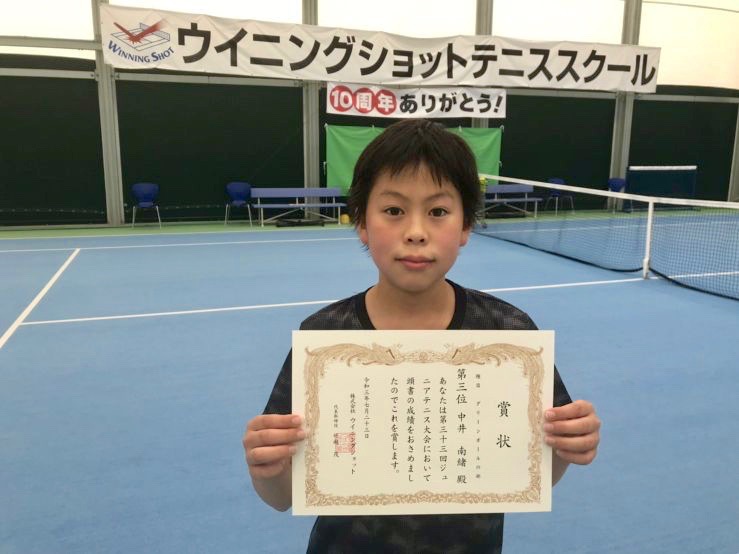 WINNING SHOT
ウイニングショットテニススクール
10周年ありがとう!
賞状
種目 グリーンボールの部
第三位 中井 南緒 殿
あなたは第三十三回ジュ
ニアテニス大会において
頭書の成績をおさめまし
たのでこれを賞します。
令和三年七月二十三日
株式会社 ウイニングショット
代表取締役